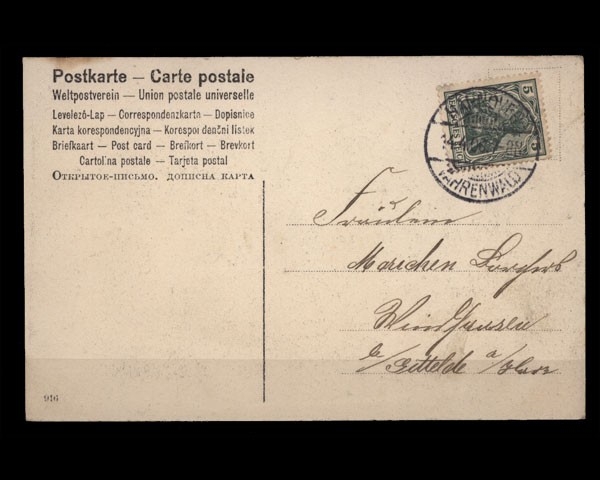 Postkarte — Carte postale
Weltpostverein — Union postale universelle
Levelező-Lap — Correspondenzkarte — Dopisnice
Karta korespondencyjna — Korespondenční lístek
Briefkaart — Post card — Brefkort — Brevkort
Cartolina postale — Tarjeta postal
Открытое-письмо. дописна карта
5
5
HANNOVER
VAHRENWALD
Fräulein
Marichen Borchers
Windhausen
b/Gittelde a/Harz
916